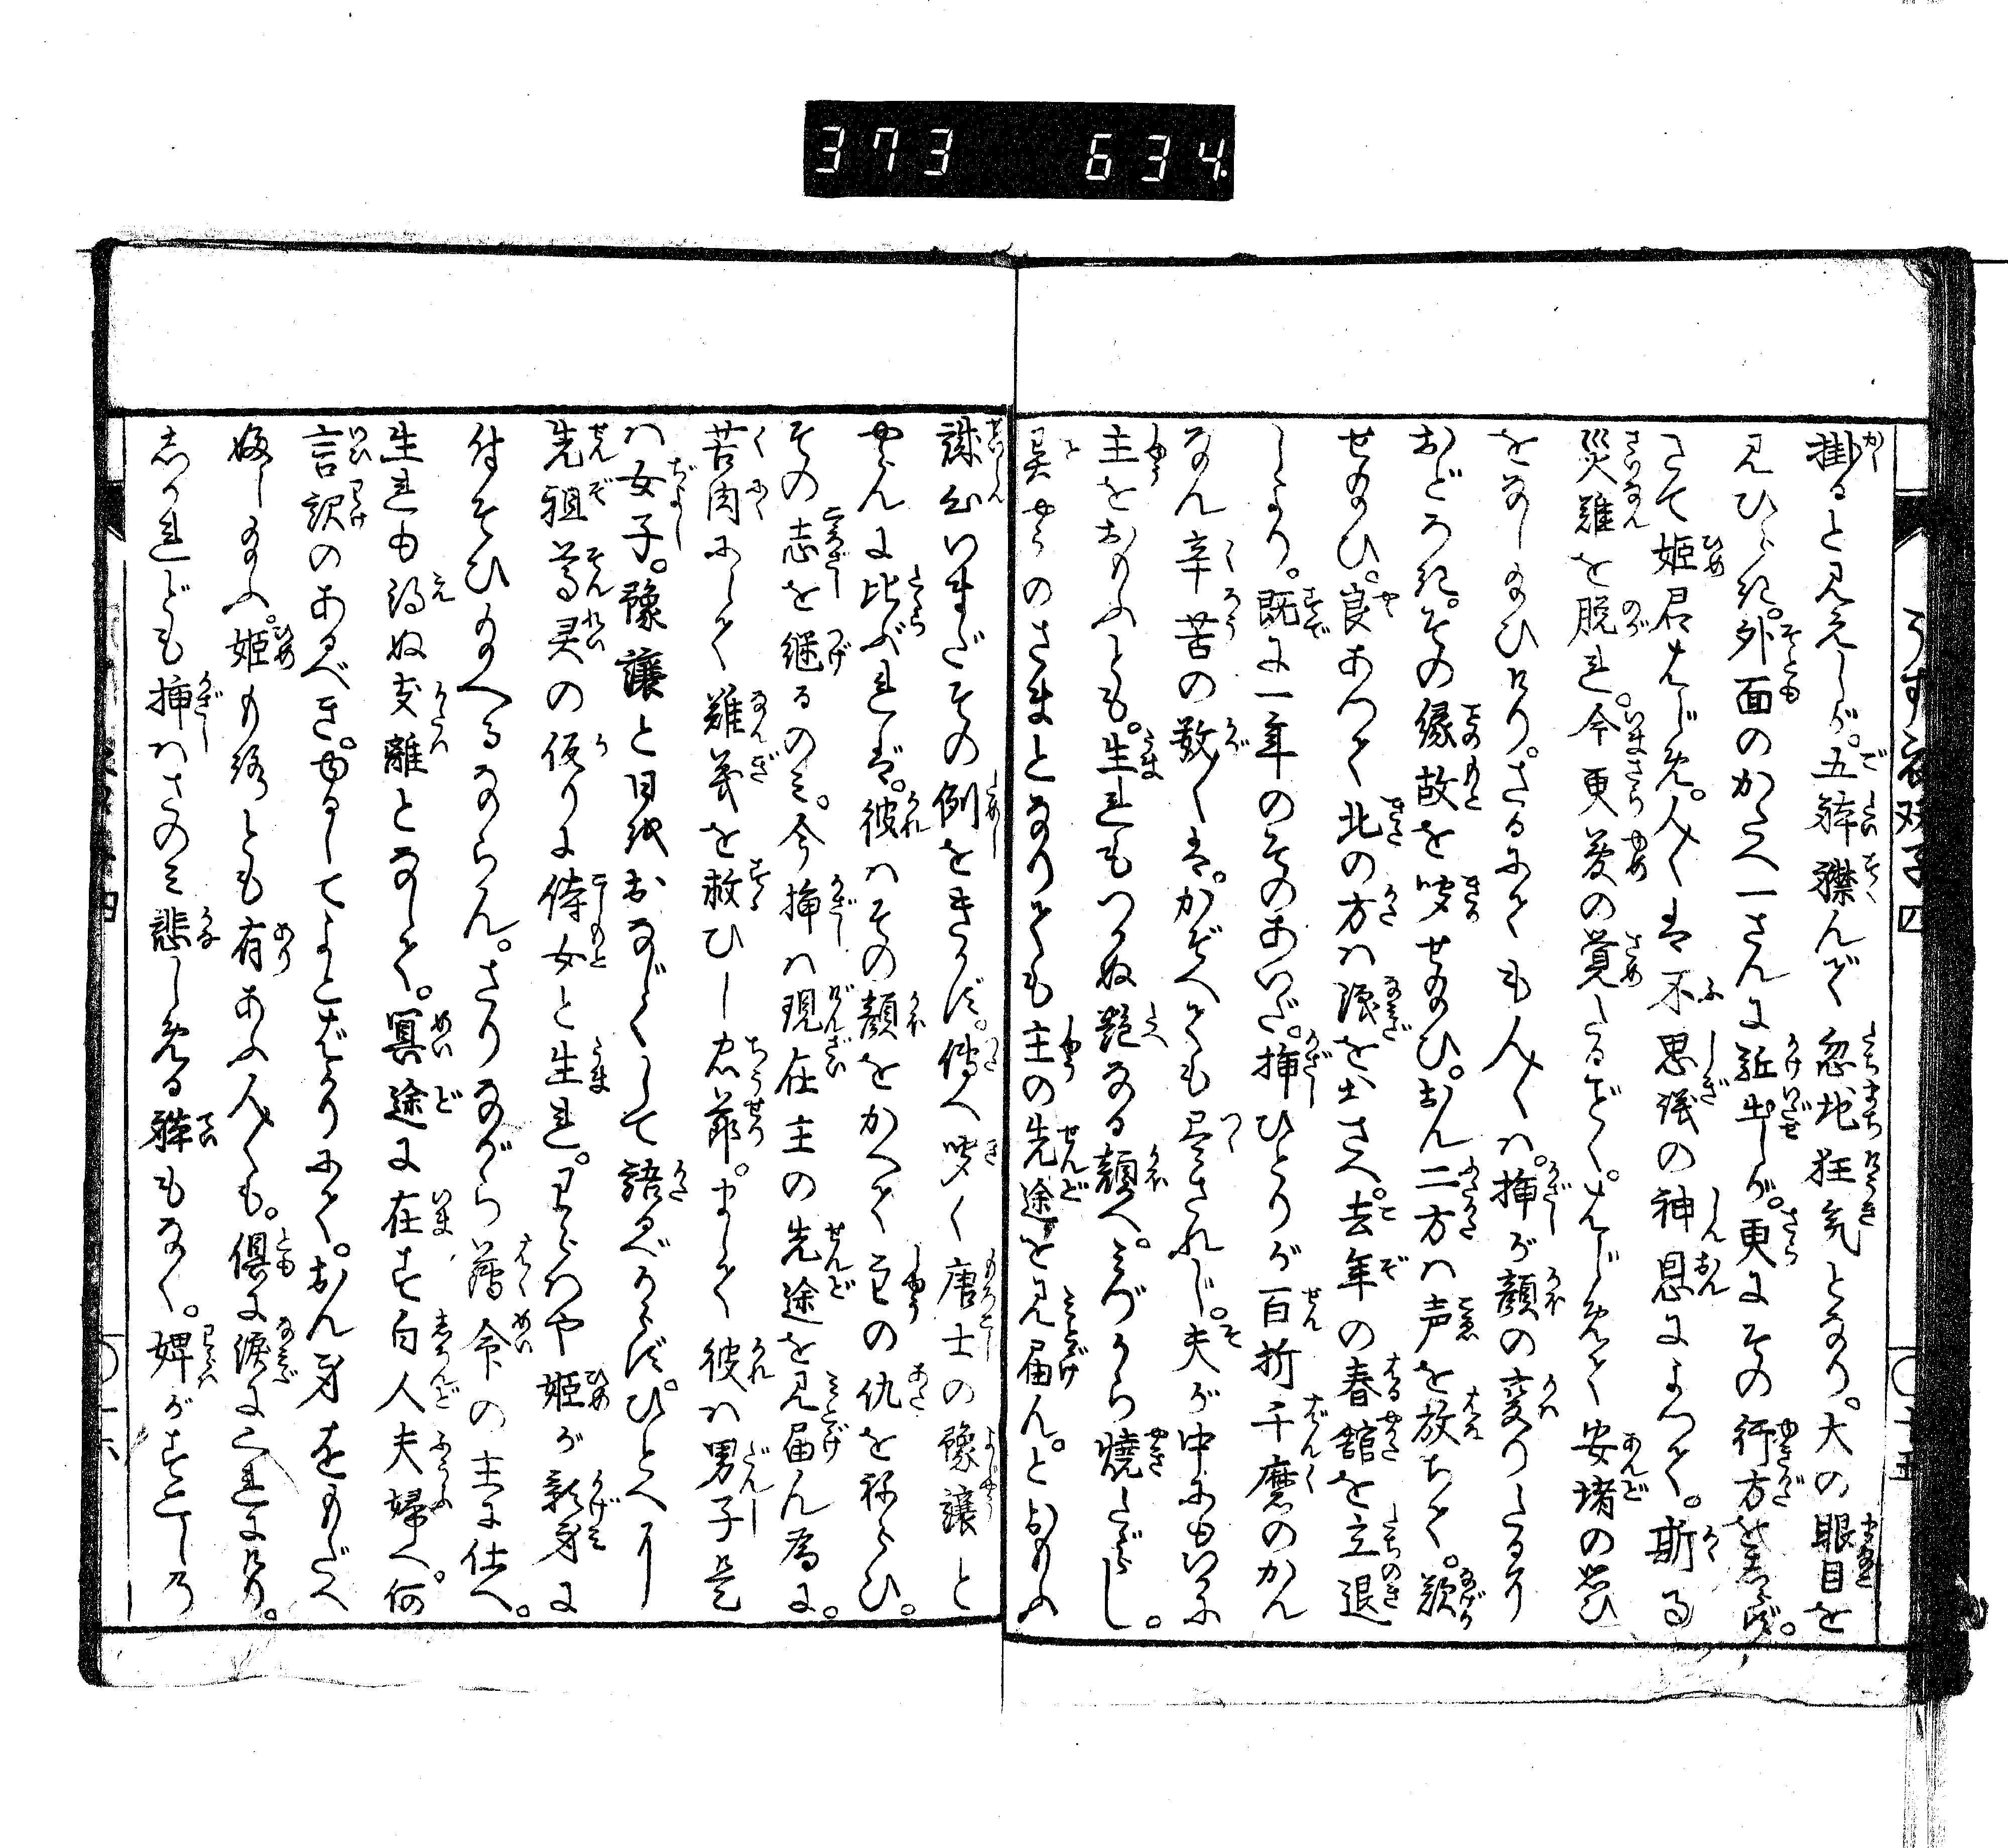 373 634
うす衣双子四
掛ると見えしが。五体襟んで忽地狂気となり。大の眼目を
見ひらき。外面のかたへ一さんに駈出しが。更にその行方をしらず。
さて姫君をはじめ。人〻は不思議の神恩によつて。斯る
災難を脱れ。今更夢の覚たるごとく。はじめて安堵の思ひ
をなし給ひけり。さるにても人〻は。挿頭が顔の変りたるに
おどろき。その縁故を聞せ給ひ。おん二方は声を放ちて。歎
せ給ひ。良あつて北の方は涙をおさへ。去年の春舘を立退
しより。既に一年のそのあいだ。挿ひとりが百折千磨のかん
なん辛苦の数〻は。かぞへても尽されじ。夫が中にもいかに
主をおもふとも。生れもつかぬ艶なる顔へ。みづから焼たゞらし。
異やうのさまとなりても主の先途を見届ん。とおもふ
誠心いまだその例をきかず。伝へ聞く唐土の豫讓と
やらんに比ぶれば。彼はその顔をかへて主の仇をねらひ。
その志を継るのみ。今挿は現在主の先途を見届ん為に。
苦肉にして難義を救ひし忠節。まして彼は男子是
は女子。豫讓と日を同じくして語るべからず。ひとへに
先祖尊灵の仮りに侍女と生れ。又はや姫が影身に
付そひ給へるならん。さりながら薄命の主に仕へ。
生れも得ぬ支離となして。冥途に在す白人夫婦へ。何
言訳のあるべき。ゆるしてよとばかりにて。おん身をもだへ
悔し給ふ。姫も路とも有あふ人〻も。倶に涙にくれにけり。
しかれども挿はさのみ悲しめる体もなく。婢がすこしの